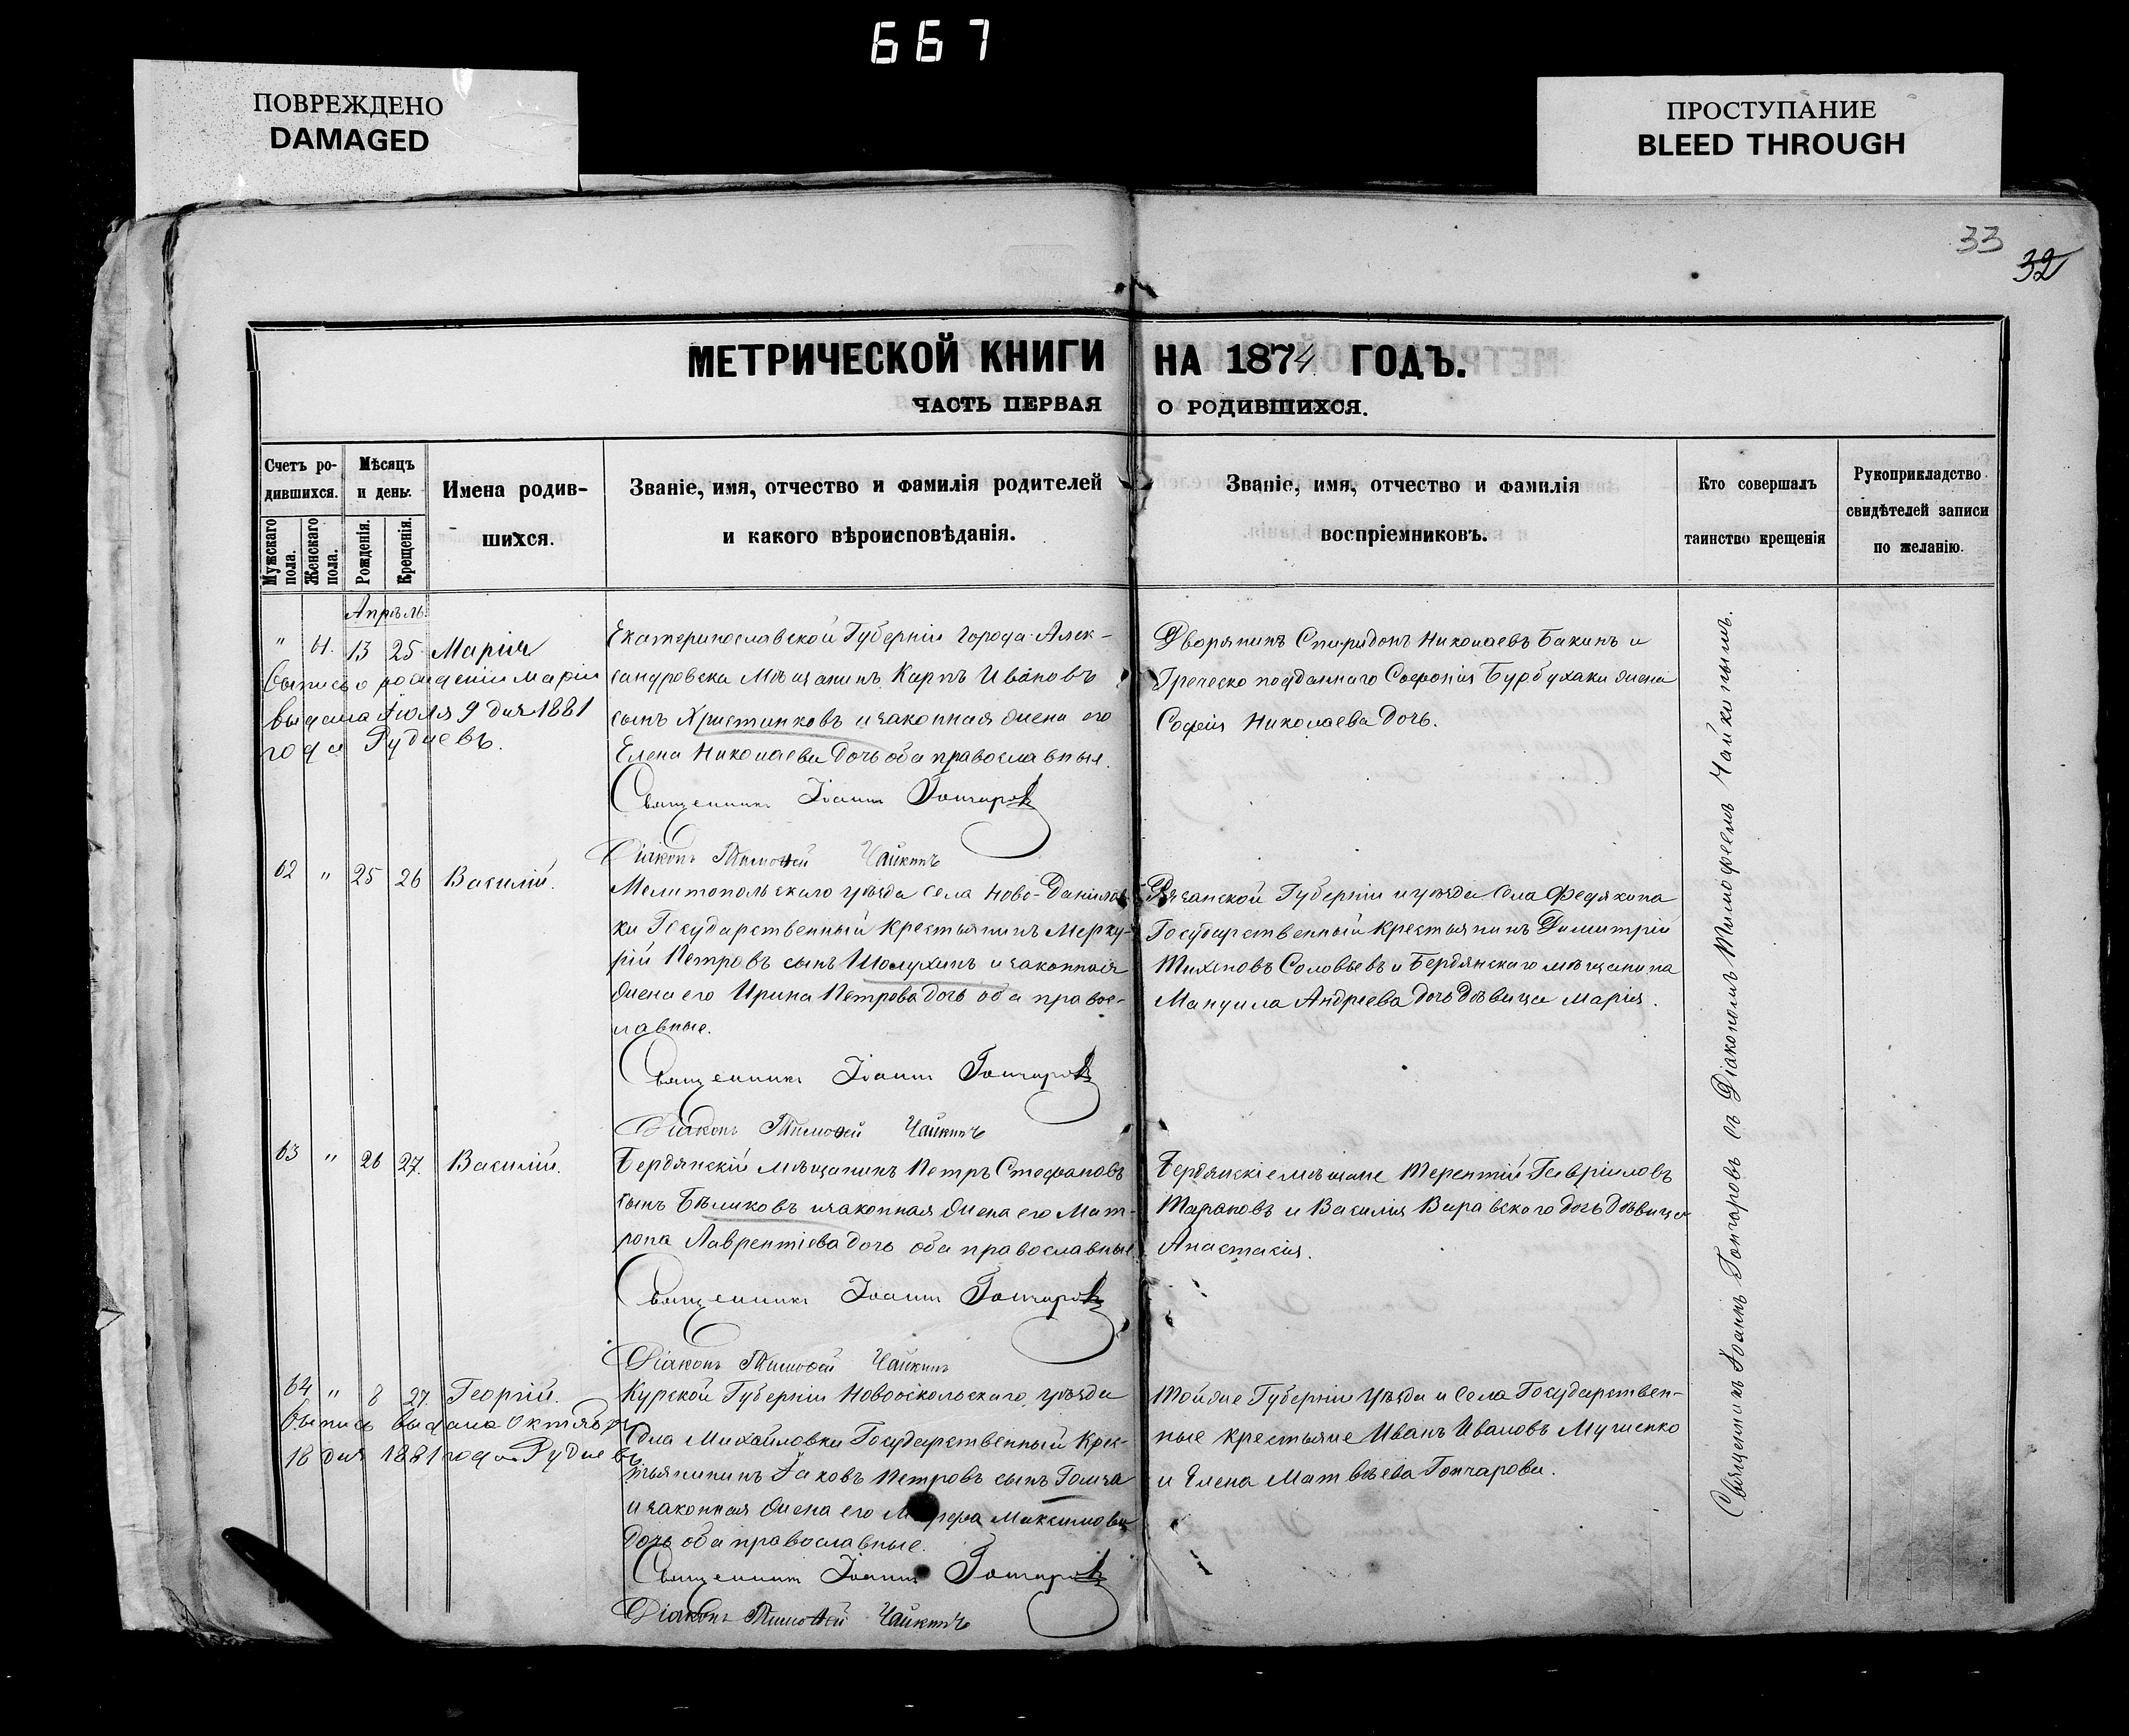 667
ПОВРЕЖДЕНО
DAMAGED
ПРОСТУПАНИЕ
BLEED THROUGH
33
32
МЕТРИЧЕСКОЙ КНИГИ НА 1874 ГОДЪ.
ЧАСТЬ ПЕРВАЯ О РОДИВШИХСЯ.
Счетъ ро-
дившихся.
Мужскаго пола.
Женскаго пола.
Мѣсяцъ
и день.
Рожденія.
Крещенія.
Имена родив-
шихся.
Званіе, имя, отчество и фамилія родителей
и какого вѣроисповѣданія.
Званіе, имя, отчество и фамилія
воспріемниковъ.
Кто совершалъ
таинство крещенія
Рукоприкладство
свидѣтелей записи
по желанію.
Апрѣль
" 13 25 Марія
Выпись о рожденіи Маріи
выдана Іюля 9 дня 1881
года Рудневъ.
Екатеринославской Губерніи Города Алек-
сандровска Мѣщанинъ Карпъ Ивановъ
сынъ Христинковъ и законная жена его
Елена Николаева дочь оба православные.
Священникъ Іоаннъ Гончаровъ
Діаконъ Тимофей Чайкинъ
Дворянинъ Спиридонъ Николаевъ Бакинъ и
Греческо подданнаго Софронія Бурбухаки жена
Софія Николаева дочь.
62 " 25 26 Василій.
Мелитопольскаго уѣзда Села Ново-Данилов-
ки Государственный Крестьянинъ Мерку-
рій Петровъ сынъ Шолухинъ и законная
жена его Ирина Петрова дочь оба правос-
лавные.
Священникъ Іоаннъ Гончаровъ
Діаконъ Тимофей Чайкинъ
Рязанской Губерніи и уѣзда Села Федякина
Государственный Крестьянинъ Димитрій
Тихоновъ Соловьевъ и Бердянскаго мѣщанина
Мануила Андреева дочь дѣвица Марія.
63 " 26 27. Василій.
Бердянскій мѣщанинъ Петръ Стефановъ
сынъ Бѣликовъ и законная жена его Мат-
рона Лаврентіева дочь оба православные
Священникъ Іоаннъ Гончаровъ
Діаконъ Тимофей Чайкинъ
Бердянскіе мѣщане Терентій Гавріиловъ
Тарановъ и Василія Варавскаго дочь дѣвица
Анастасія.
64 " 8 27. Георгій.
Выпись выдана Октября
18 дня 1881 года Рудневъ
Курской Губерніи Новооскольскаго уѣзда
Села Михайловки Государственный Крес-
тьянининъ Іаковъ Петровъ сынъ Голча
и законная жена его Марфа Максимова
дочь оба православные.
Священникъ Іоаннъ Гончаровъ
Діаконъ Тимофей Чайкинъ
Той же Губерніи Уѣзда и Села Государствен-
ные крестьяне Иванъ Ивановъ Мученко
и Елена Матвѣева Гончарова.
Священникъ Іоаннъ Гончаровъ съ Діакономъ Тимофеемъ Чайкинымъ.